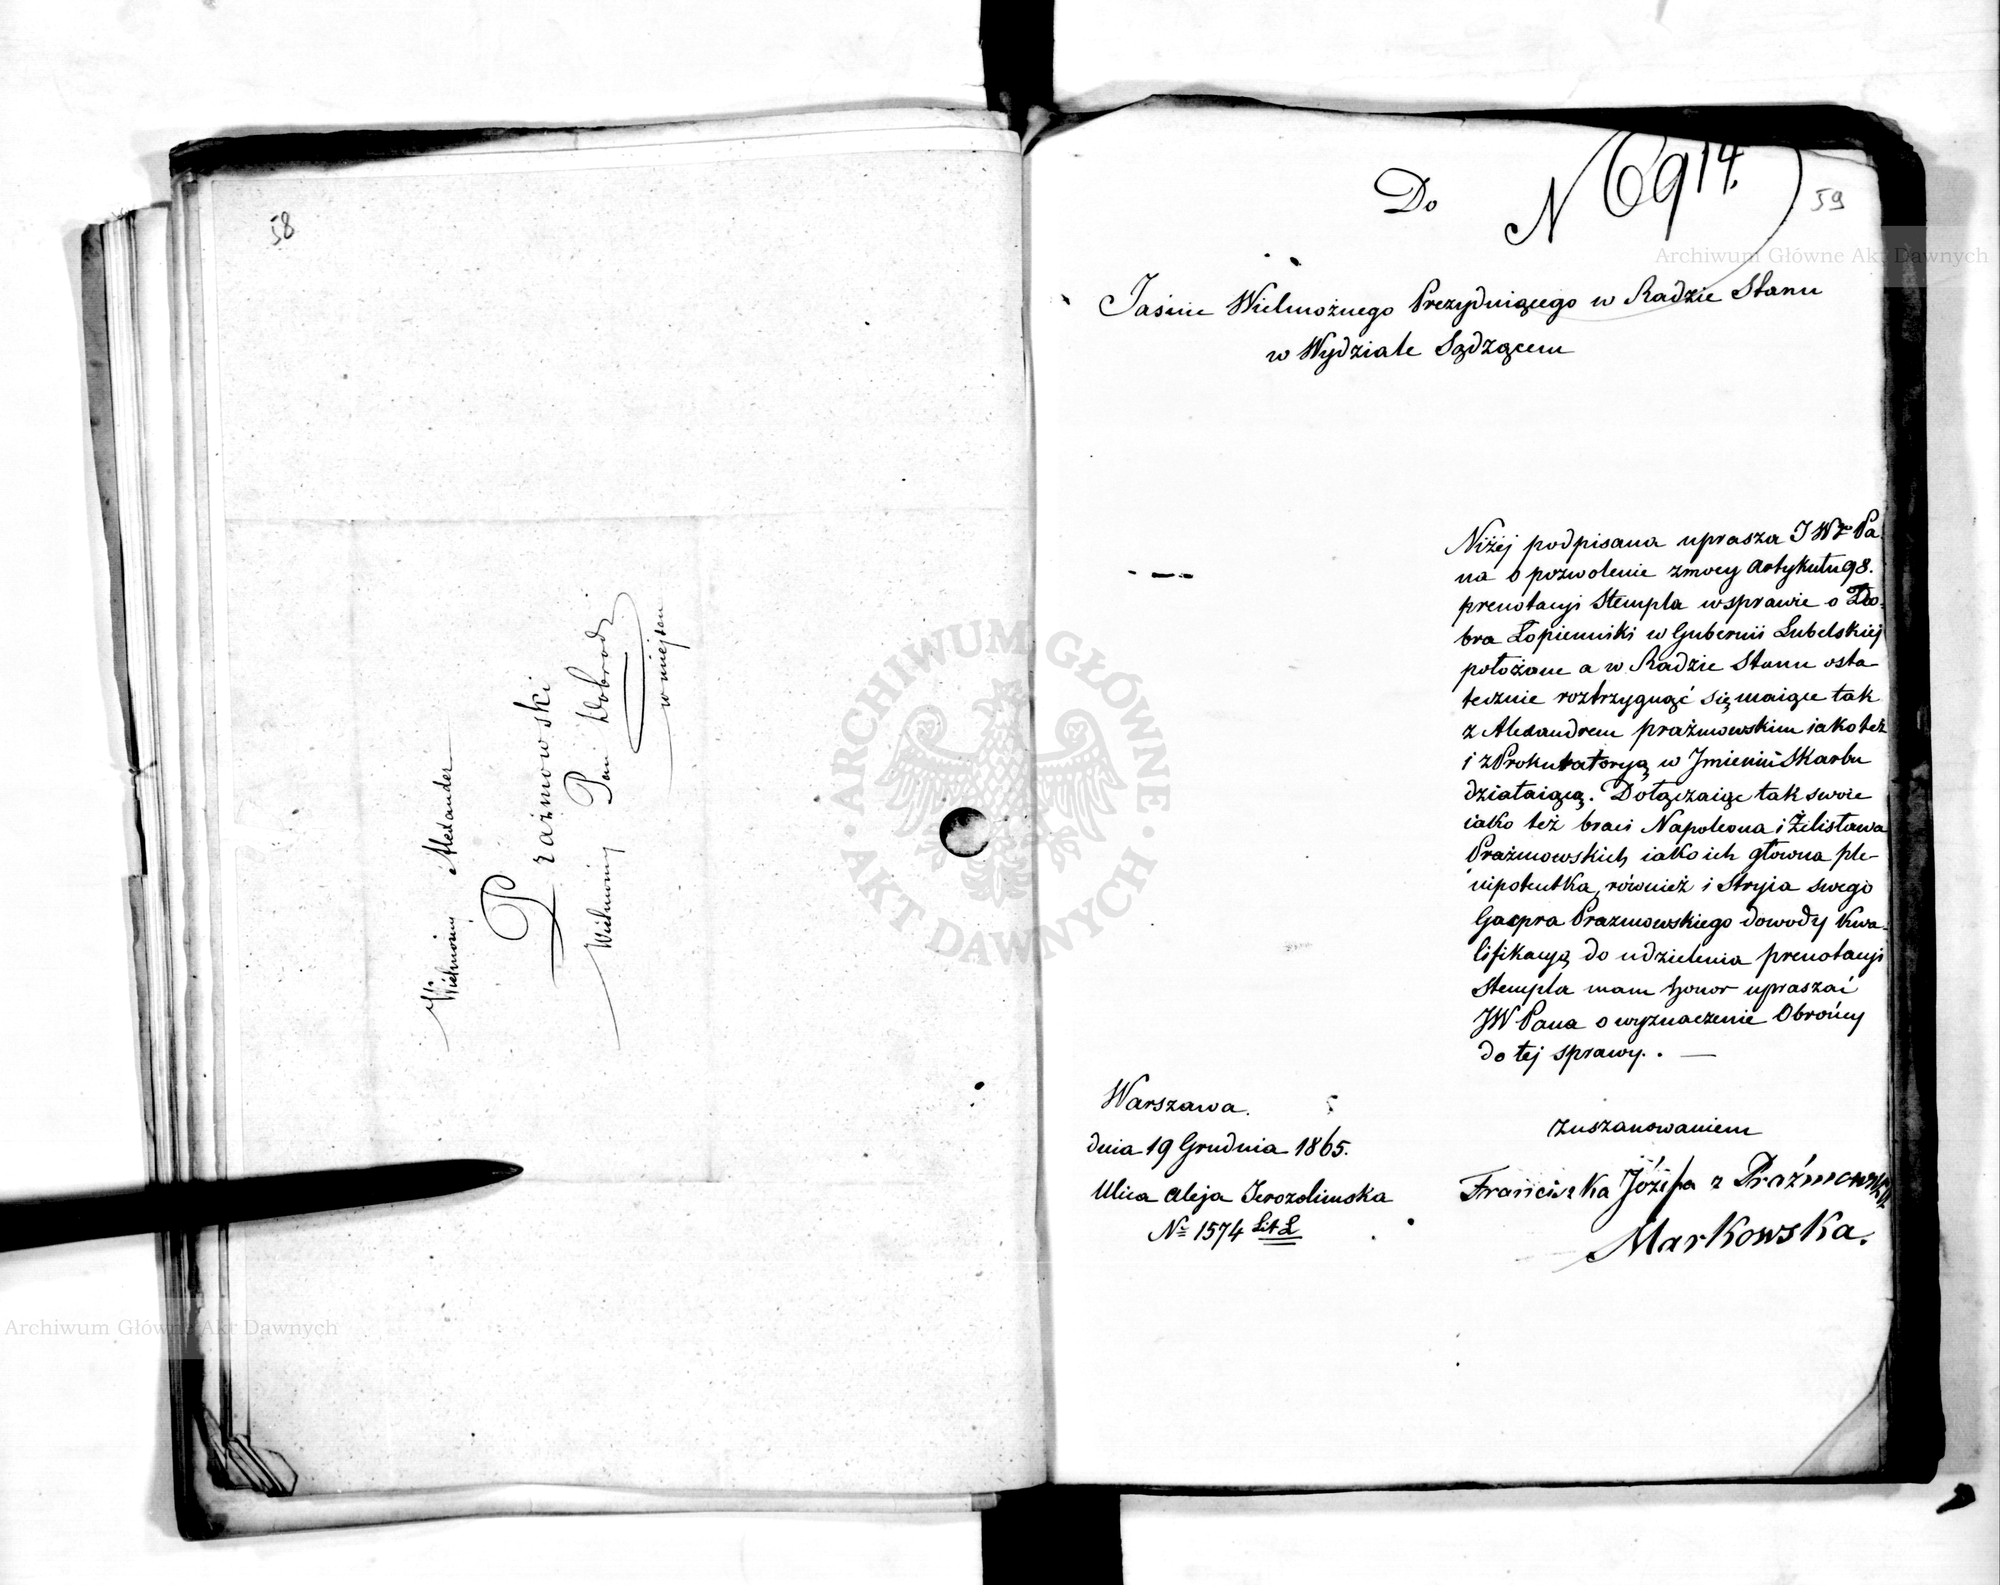 58
Wielmożny Alexander
Prażmowski
Wielmożny Pan Dobrodz
w miejscu
59
Do
N 6914.
Jaśnie Wielmożnego Prezyduiącego w Radzie Stanu
w Wydziale Sądzącem
Niżej podpisana uprasza JW Pa
na o pozwolenie zmocy Artykułu 98.
prenotacyi Stempla wsprawie o Do-
bra Łopienniki w Gubernii Lubelskiej
położone a w Radzie Stanu osta-
tecznie roztrzygnąć się maiące tak
z Alexandrem prażmowskim iako też
i z Prokuratoryą w Jmieniu Skarbu
działaiącą. Dołączaiąc tak swoie
iako też braci Napoleona i Żelisława
Prażmowskich iako ich główna ple-
nipotentka, również i Stryia swego
Gacpra Prazmowskiego dowody kwa-
lifikacyą do udzielenia prenotacyi
Stempla mam honor upraszać
JW Pana o wyznaczenie Obrońcy
do tej sprawy. . —
Warszawa.
dnia 19 Grudnia 1865.
Ulica Aleja Jerozolimska
№ 1574 Lit L
zuszanowaniem
Franciszka Józefa z Prażmowskich
Markowska.
ARCHIWUM GŁÓWNE AKT DAWNYCH
Archiwum Główne Akt Dawnych
Archiwum Główne Akt Dawnych